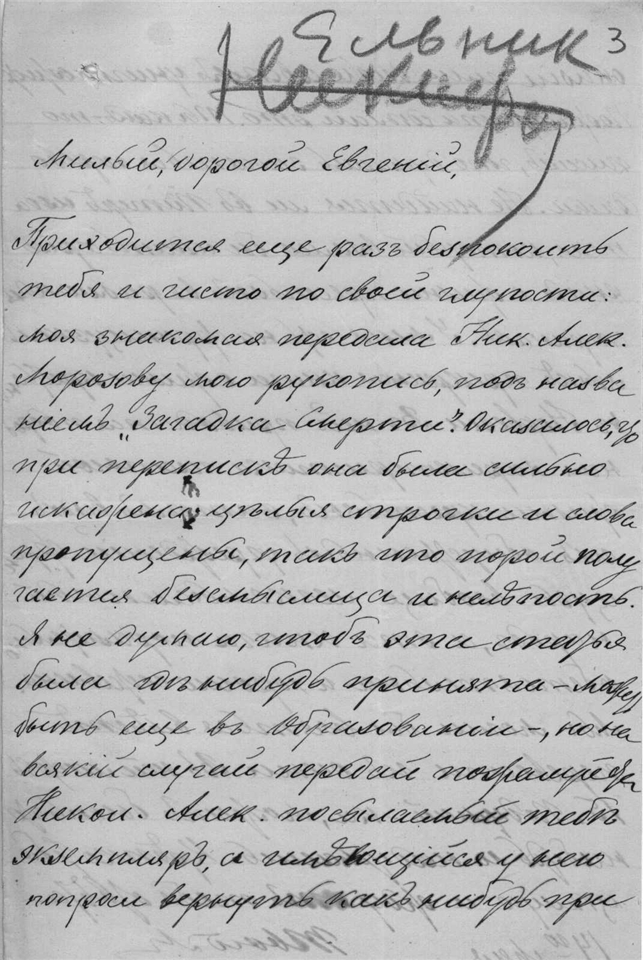 3
Ельник
Милый, дорогой Евгеній,
Приходится еще разъ безпокоить
тебя и чисто по своей глупости:
моя знакомая передала Ник. Алек.
Морозову мою рукопись, подъ назва
ніемъ „Загадка Смерти". Оказалось, что
при перепискѣ она была сильно
искажена: цѣлыя строчки и слова
пропущены, такъ что порой полу
чается безсмыслица и нелѣпость.
Я не думаю, чтобъ эта статья
была гдѣ нибудь принята – может
быть еще въ Образованіи –, но на
всякій случай передай пожалуйста
Никол. Алек. посылаемый тебѣ
экземпляръ, а имѣющійся у него
попроси вернуть какъ нибудь при